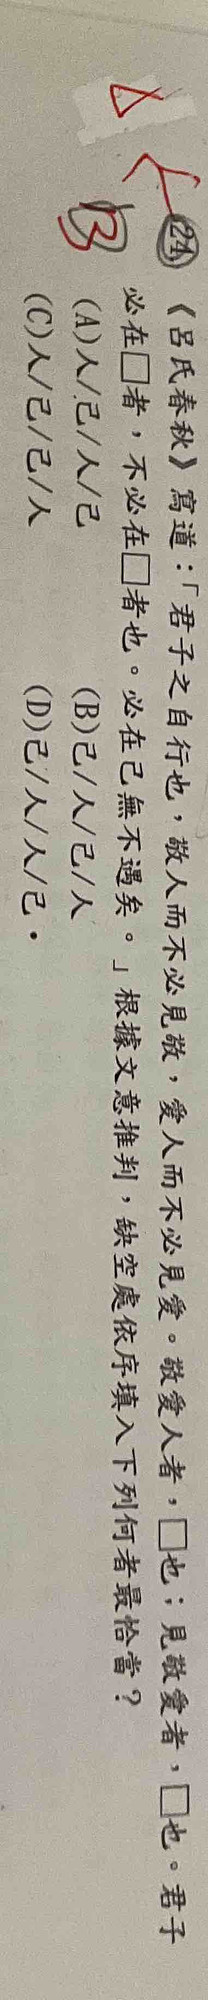 B 24. 《呂氏春秋》寫道：「君子之自行也，敬人而不必見敬，愛人而不必見愛。敬愛人者，□也；見敬愛者，□也。君子
必在□者，不必在□者也。必在己無不遇矣。」根據文意推判，缺空處依序填入下列何者最恰當？
(A)人/己/人/己 (B)己/人/己/人
(C)人/己/己/人 (D)己/人/人/己。